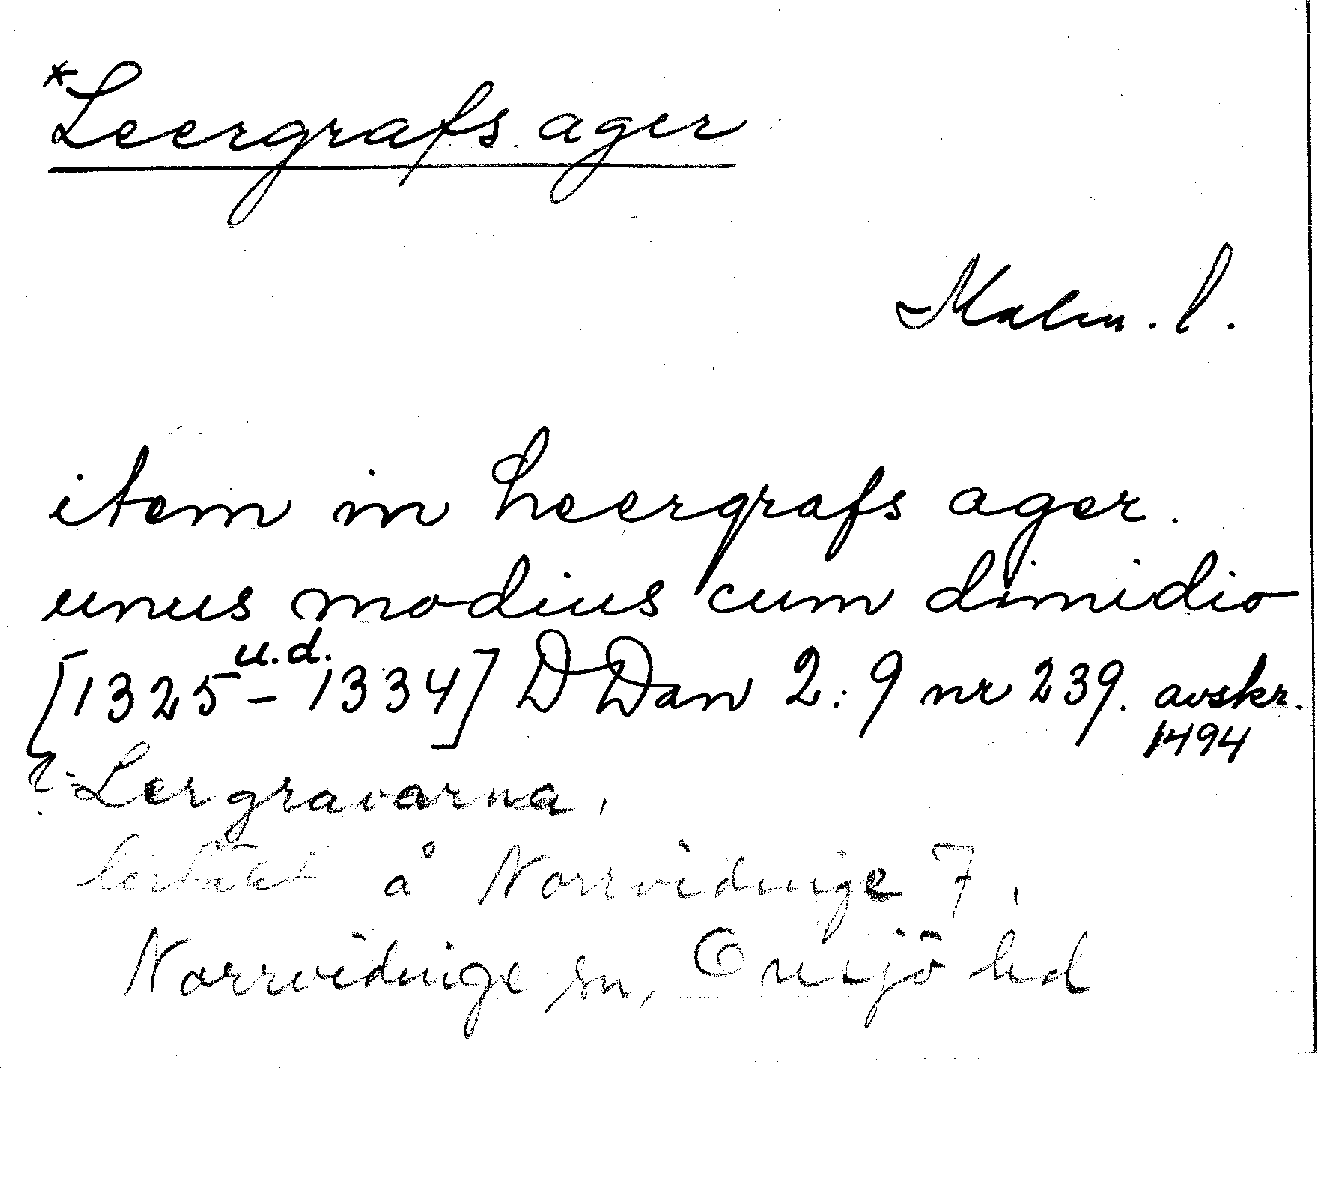 *Leergrafs ager
Malm. l.
item in heergrafs ager.
unus modius cum dimidio
[1325 u.d. – 1334] D Dan 2:9 nr 239. avskr. 1494
? = Lergravarna,
å Norrvidinge 7,
Norrvidinge sn, Onsjö hd